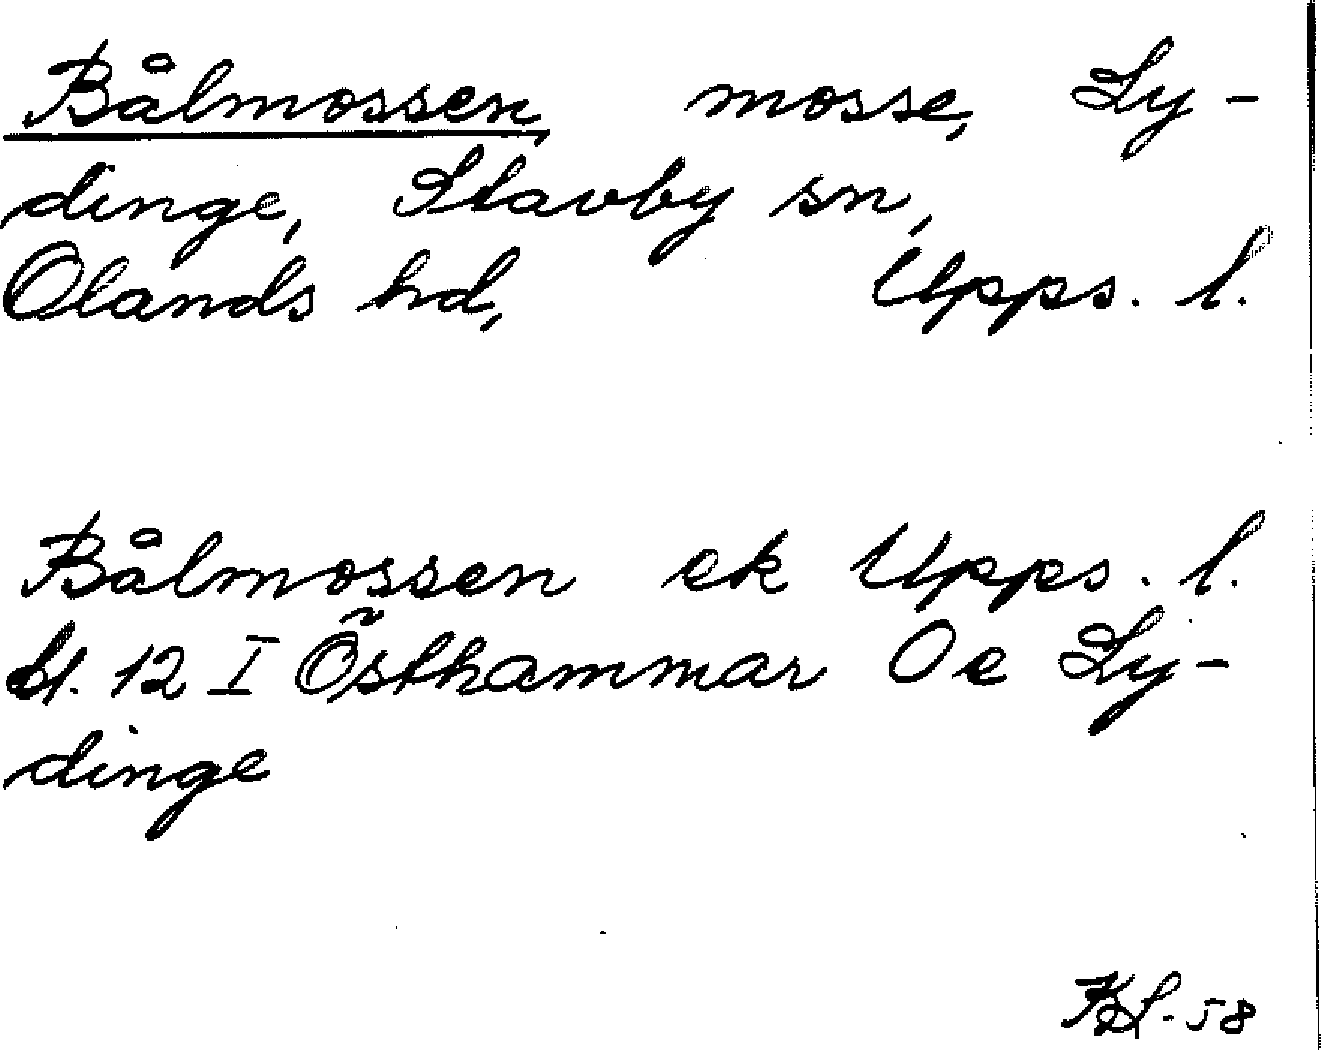 Bålmossen, mosse, Ly-
dinge, Stavby sn,
Olands hd, Upps. l.
Bålmossen ek Upps. l.
bl. 12 I Östhammar Oe Ly-
dinge
58